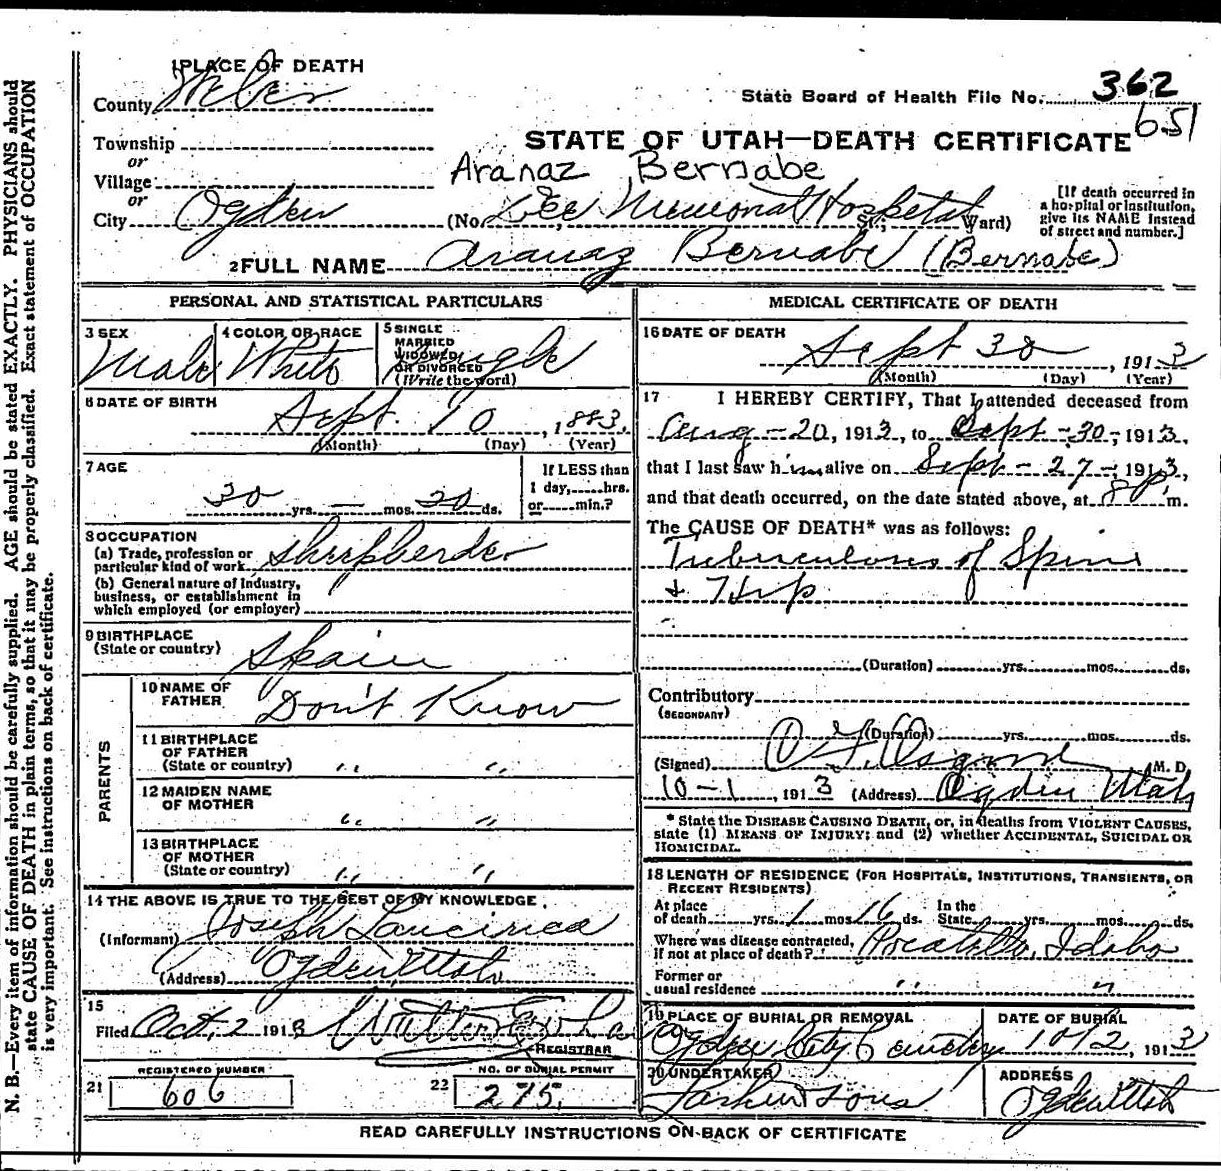 1 PLACE OF DEATH
County Weber
State Board of Health File No. 362
651
Township
or
Village
or
City Ogden
STATE OF UTAH—DEATH CERTIFICATE
Aranaz Bernabe
(No. Dee Memorial Hospital St.; Ward)
[If death occurred in a hospital or institution, give its NAME instead of street and number.]
2 FULL NAME Aranaz Bernabe (Bernabe)
PERSONAL AND STATISTICAL PARTICULARS
3 SEX Male
4 COLOR OR RACE White
5 SINGLE MARRIED WIDOWED OR DIVORCED (Write the word) Single
6 DATE OF BIRTH
Sept. 10, 1883.
(Month) (Day) (Year)
7 AGE
30 yrs. — mos. 20 ds.
If LESS than 1 day,.....hrs. or.....min.?
8 OCCUPATION
(a) Trade, profession or particular kind of work Sheepherder
(b) General nature of Industry, business, or establishment in which employed (or employer)
9 BIRTHPLACE
(State or country) Spain
PARENTS
10 NAME OF FATHER Don't Know
11 BIRTHPLACE OF FATHER (State or country) " "
12 MAIDEN NAME OF MOTHER " "
13 BIRTHPLACE OF MOTHER (State or country) " "
14 THE ABOVE IS TRUE TO THE BEST OF MY KNOWLEDGE
(Informant) Joseph
(Address) Ogden Utah
15
Filed Oct. 2 1913
REGISTRAR
21 REGISTERED NUMBER 606
22 NO. OF BURIAL PERMIT 275.
MEDICAL CERTIFICATE OF DEATH
16 DATE OF DEATH
Sept 30, 1913
(Month) (Day) (Year)
17 I HEREBY CERTIFY, That I attended deceased from
Aug - 20, 1913, to Sept - 30-, 1913,
that I last saw him alive on Sept - 27-, 1913,
and that death occurred, on the date stated above, at 8 P m.
The CAUSE OF DEATH* was as follows:
Tuberculous of Spine
& Hip
(Duration) yrs. mos. ds.
Contributory
(SECONDARY)
(Duration) yrs. mos. ds.
(Signed) M. D.
10-1, 1913 (Address) Ogden Utah
* State the DISEASE CAUSING DEATH, or, in deaths from VIOLENT CAUSES, state (1) MEANS OF INJURY; and (2) whether ACCIDENTAL, SUICIDAL OR HOMICIDAL.
18 LENGTH OF RESIDENCE (FOR HOSPITALS, INSTITUTIONS, TRANSIENTS, OR RECENT RESIDENTS)
At place of death yrs. 1 mos. 16 ds. In the State yrs. mos. ds.
Where was disease contracted, if not at place of death? Pocatello, Idaho
Former or usual residence " "
19 PLACE OF BURIAL OR REMOVAL
Ogden City Cemetery
DATE OF BURIAL
10/2, 1913
20 UNDERTAKER
Larkin & Sons
ADDRESS
Ogden Utah
READ CAREFULLY INSTRUCTIONS ON BACK OF CERTIFICATE
N. B.—Every item of information should be carefully supplied. AGE should be stated EXACTLY. PHYSICIANS should
state CAUSE OF DEATH in plain terms, so that it may be properly classified. Exact statement of OCCUPATION
is very important. See instructions on back of certificate.